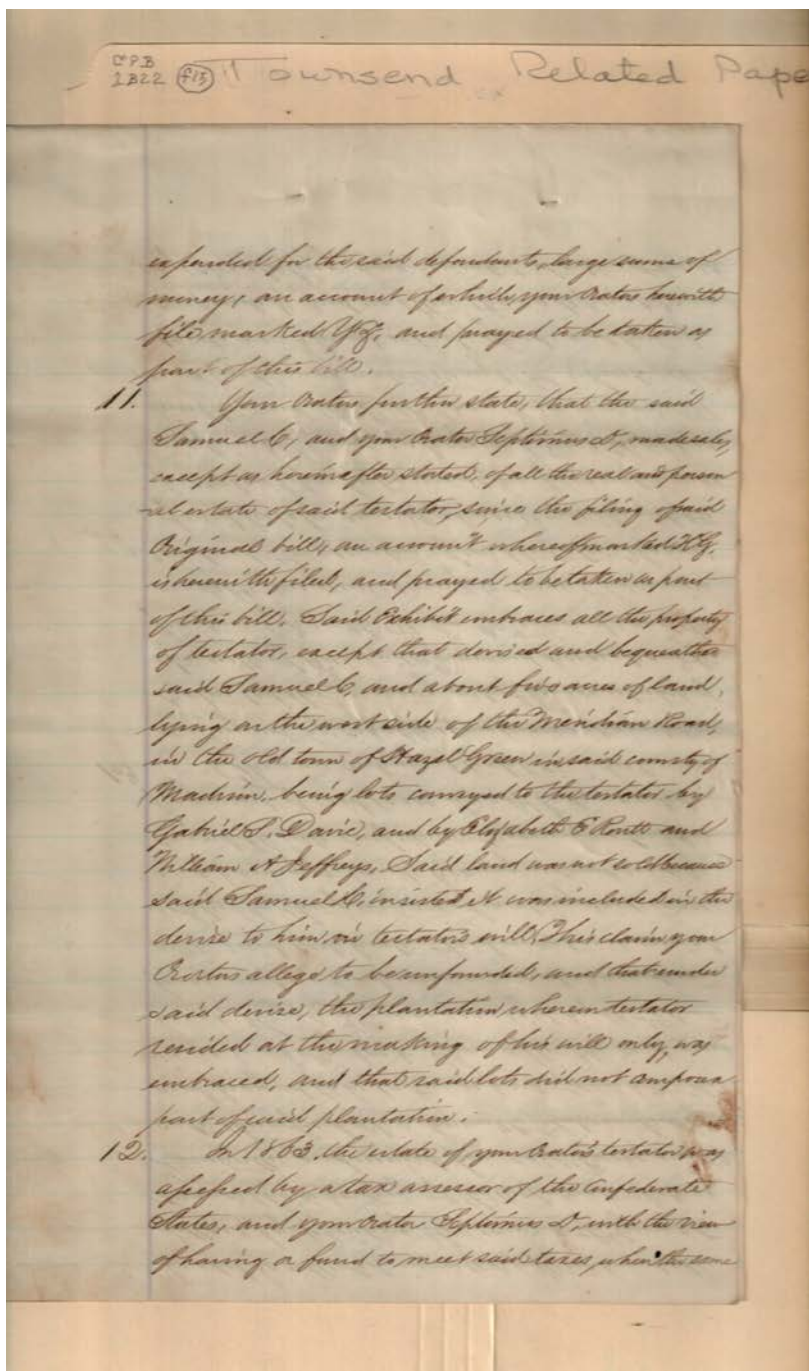 C.P.B
2B22 f15 Townsend Related Pape
expended for the said defendants, large sums of
money; an account of which, your Orators herewith
file marked and prayed to be taken as
part of this bill.
11. Your Orators further state, that the said
Samuel C, and your Orator Septimus D, made sales,
except as hereinafter stated, of all the real and person
-al estate of said testator, since the filing of said
Original bill, an account whereof marked H.G.
is herewith filed, and prayed to be taken as part
of this bill. Said Exhibit embraces all the property
of testator, except that devised and bequeathed
said Samuel C, and about five acres of land,
lying on the west side of the Meridian Road,
in the old town of Hazel Green in said county of
Madison, being lots conveyed to the testator by
Gabriel S. Davie, and by Elizabeth E Routt and
William A Jeffreys, Said land was not sold because
said Samuel C, insisted it was included in the
devise to him in testator's will. This claim your
Orators allege to be unfounded, and that under
said devise, the plantation, wherein testator
resided at the making of his will only, was
embraced, and that said lots did not compose a
part of said plantation.
12. In 1863, the estate of your Orator's testator was
assessed by a tax assessor of the Confederate
States, and your Orator Septimus D, with the view
of having a fund to meet said taxes, when the same